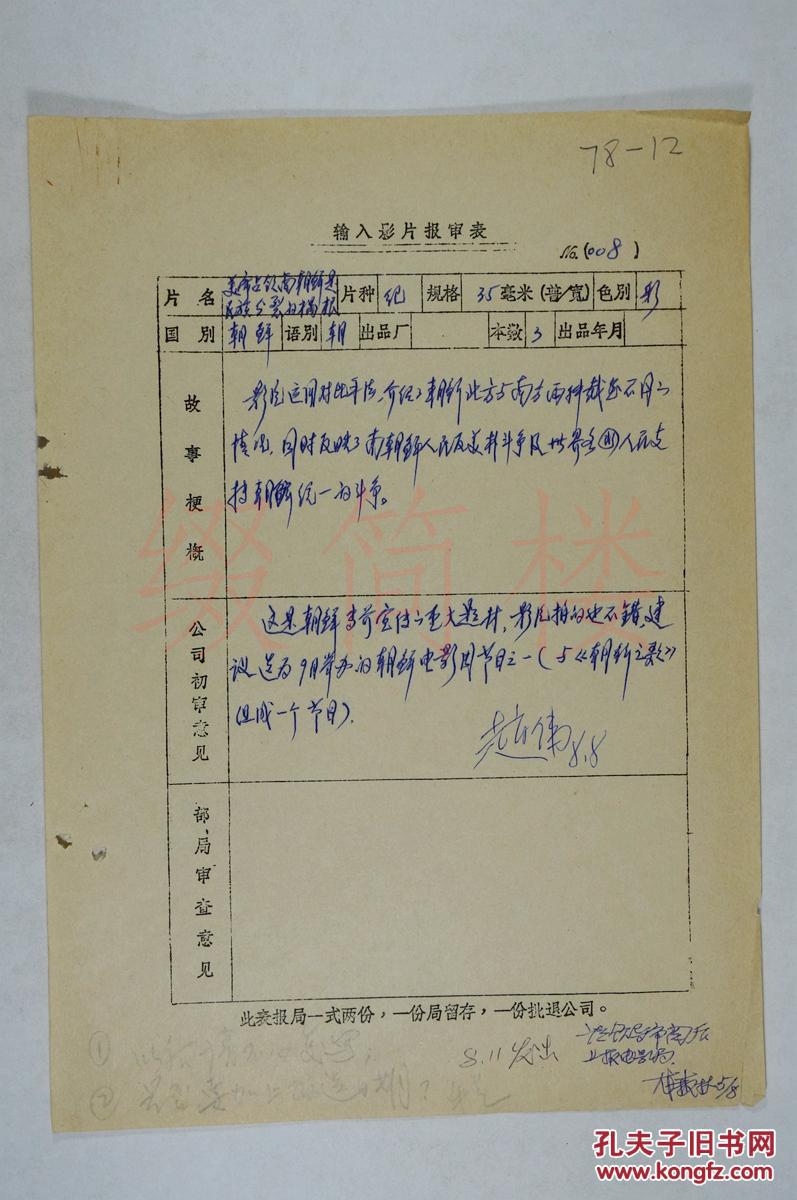 78-12
输入影片报审表
No.(008)
片名 美帝占领南朝鲜是民族分裂的祸根 片种 纪 规格 35毫米(普/宽) 色别 彩
国别 朝鲜 语别 朝 出品厂 本数 3 出品年月
故事梗概
影片运用对比手法,介绍了朝鲜北方与南方两种截然不同的
情况,同时反映了南朝鲜人民反美朴斗争及世界各国人民支
持朝鲜统一的斗争。
公司初审意见
这是朝鲜当前宣传的重大题材,影片拍的也不错,建
议选为9月举办的朝鲜电影周节目之一(与《朝鲜之歌》
组成一个节目).
8.8
部、局审查意见
此表报局一式两份,一份局留存,一份批退公司。
8.11发出
上报电影局.
5/8
①
②
缀简楼
孔夫子旧书网
www.kongfz.com